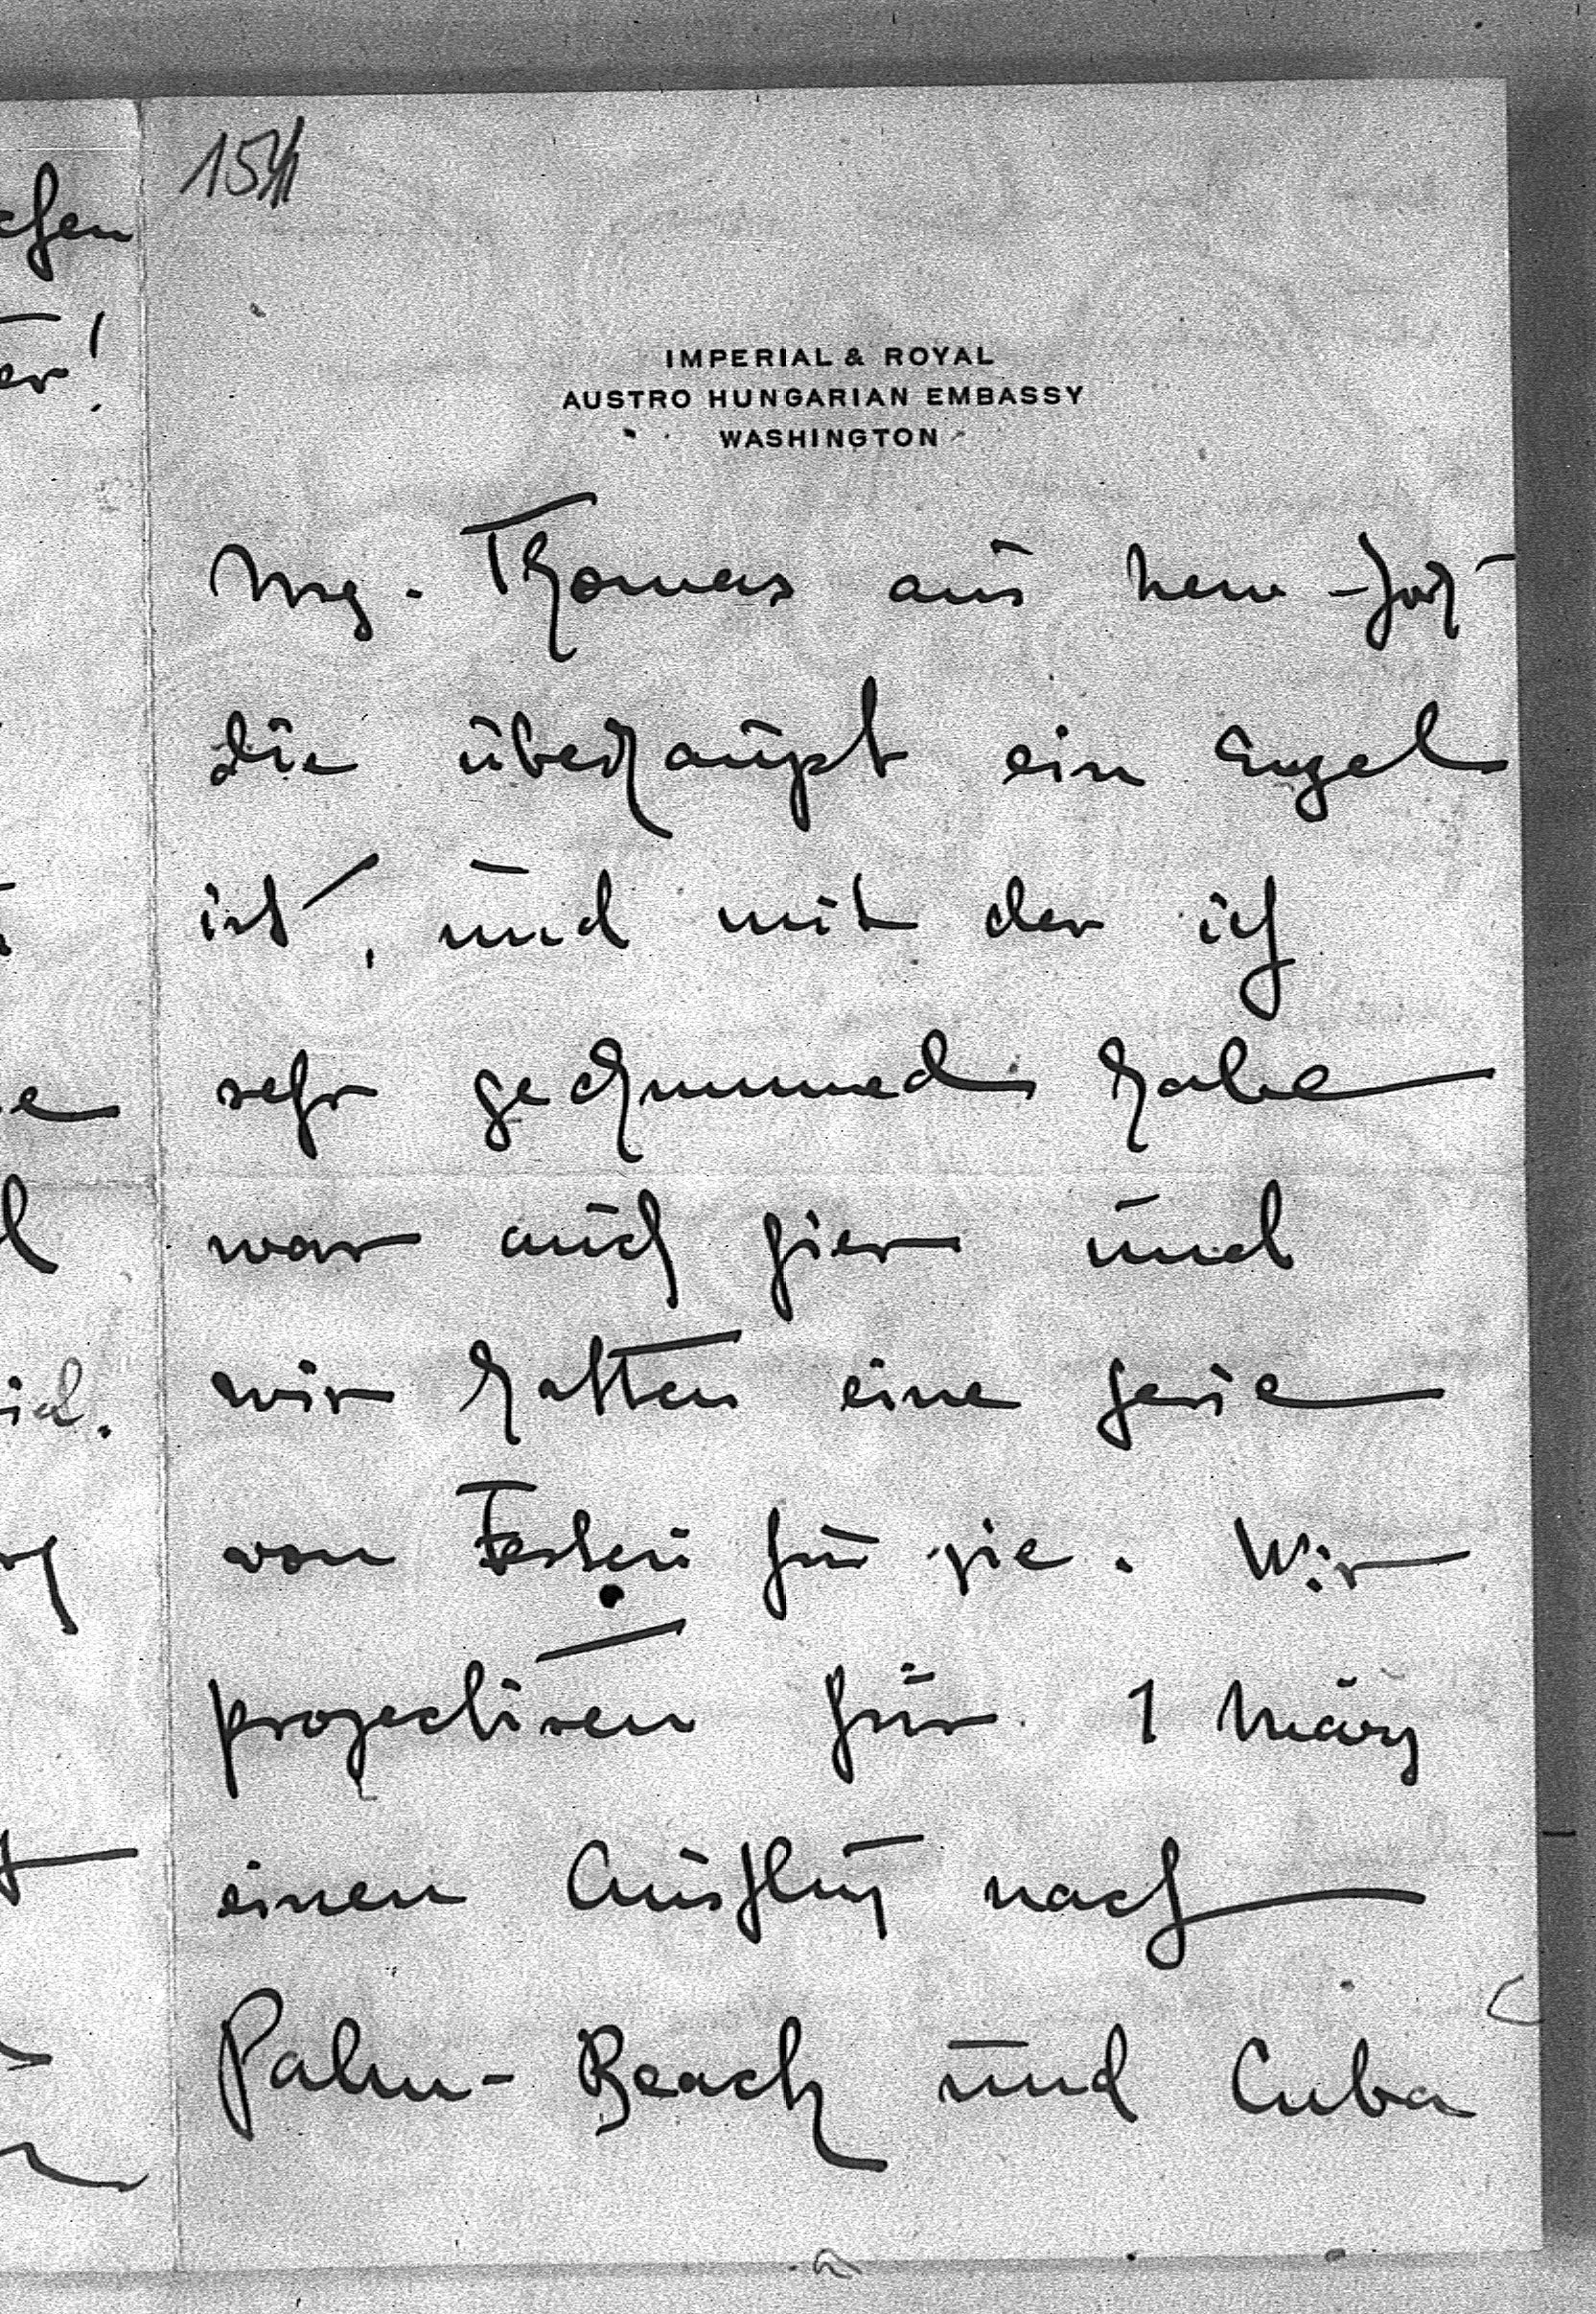 15/II
IMPERIAL & ROYAL
AUSTRO HUNGARIAN EMBASSY
WASHINGTON
Mrs. Thomas aus New-York
die überhaupt ein Engel
ist, und mit der ich
sehr gechummed habe
war auch hier und
wir hatten eine serie
von Festen für sie. Wir
projectiren für 1 März
einen Ausflug nach
Palm-Beach und Cuba